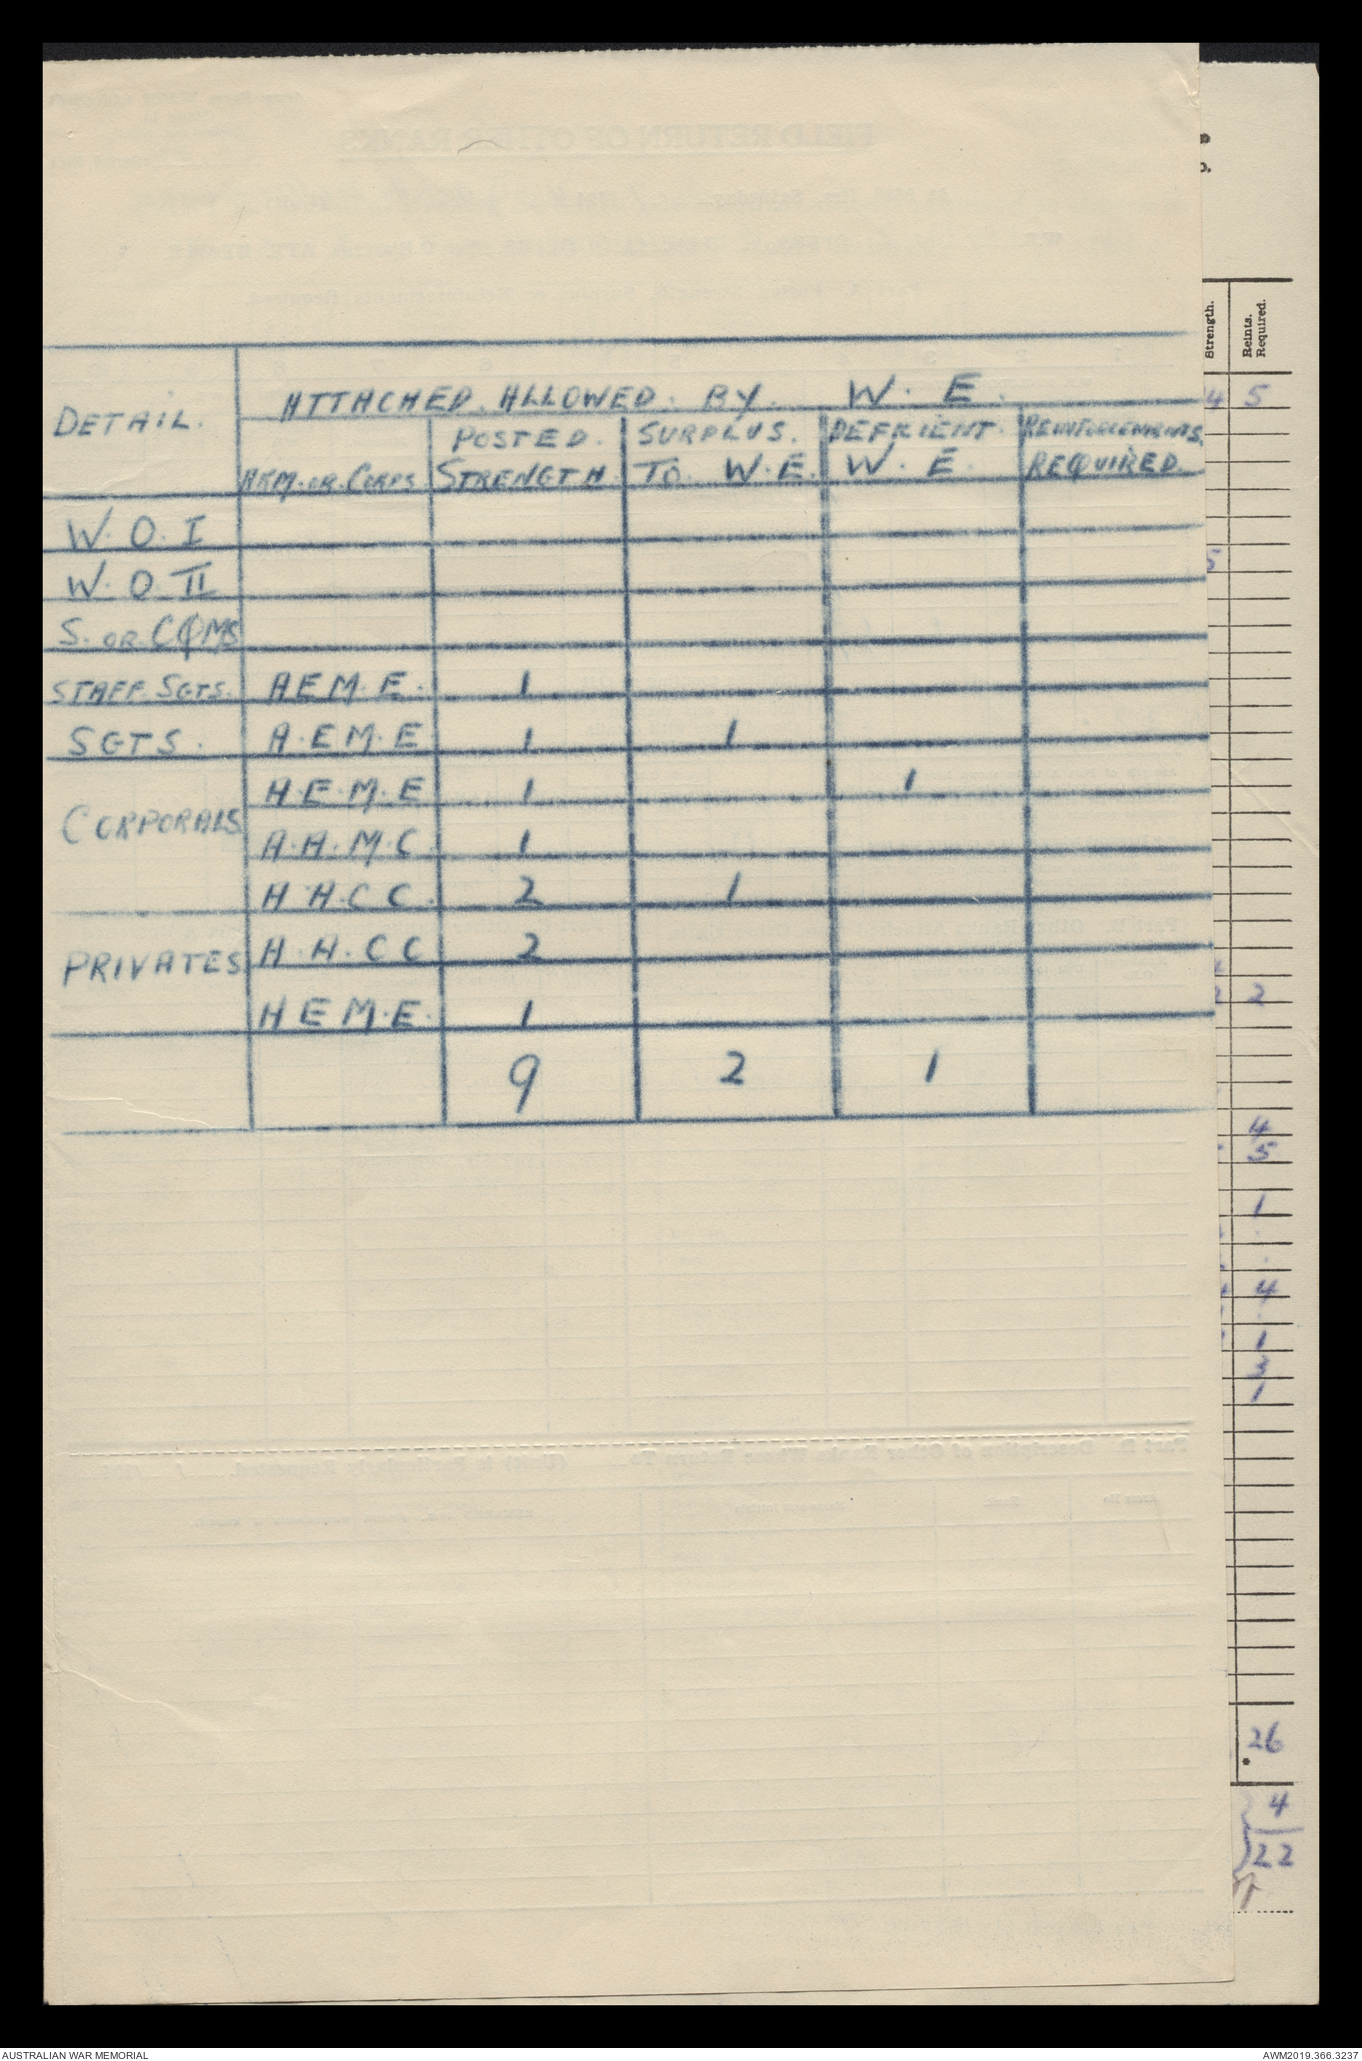 ATTACHED. ALLOWED. BY. W. E.
DETAIL.
ARM. OR. CORPS
POSTED. STRENGTH
SURPLUS. TO. W.E.
DEFICIENT. W. E.
REINFORCEMENTS. REQUIRED.
W. O. I
W. O. II
S. OR CQMS
STAFF. SGTS. A E M. E. 1
SGTS. A. E M. E 1 1
CORPORALS A. E. M. E 1 1
A. A. M. C. 1
A A. C C. 2 1
PRIVATES A. A. C C 2
A E M. E. 1
9 2 1
Strength.
Reints. Required.
4 5
5
2
4
5
1
4
1
3
1
26
4
22
AUSTRALIAN WAR MEMORIAL
AWM2019.366.3237